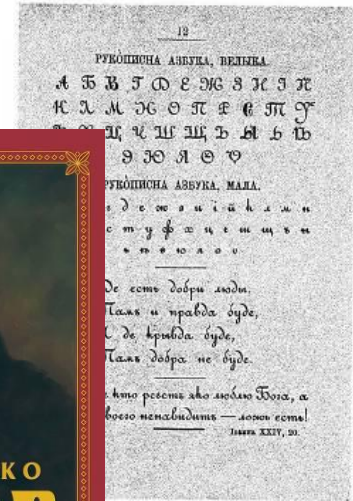 12
РУКОПИСНА АЗБУКА, ВЕЛЫКА.
А Б В Г Д Е Ж З И І Й
К Л М Н О П Р С Т У
Х Ц Ч Ш Щ Ъ Ы Ь Ѣ
Э Ю Я Ѳ Ѵ
РУКОПИСНА АЗБУКА, МАЛА.
д е ж з и і й к л м н
с т у ф х ц ч ш щ ъ ы
ь ѣ э ю я
есть добри люды,
Тамъ и правда буде,
де крывда буде,
Тамъ добра не буде.
кто речеть яко люблю Бога, а
своего ненавидить — ложь есть!
XXIV, 20.
КО